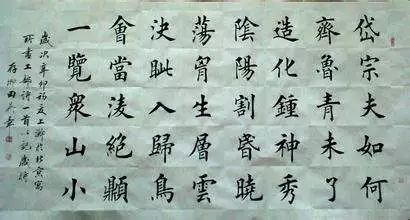 岱宗夫如何
齊魯青未了
造化鍾神秀
陰陽割昏曉
蕩胷生層雲
決眦入歸鳥
會當淩絕顚
一覽衆山小
歲次辛卯初夏上澣於北京寫
工部詩一首以記歲時